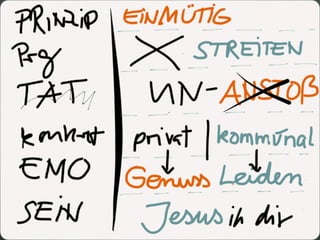 PRINZIP EINMÜTIG
STREITEN
TAT UN-ANSTOß
konkret privat | kommunal
EMO Genuss Leiden
SEIN Jesus in dir